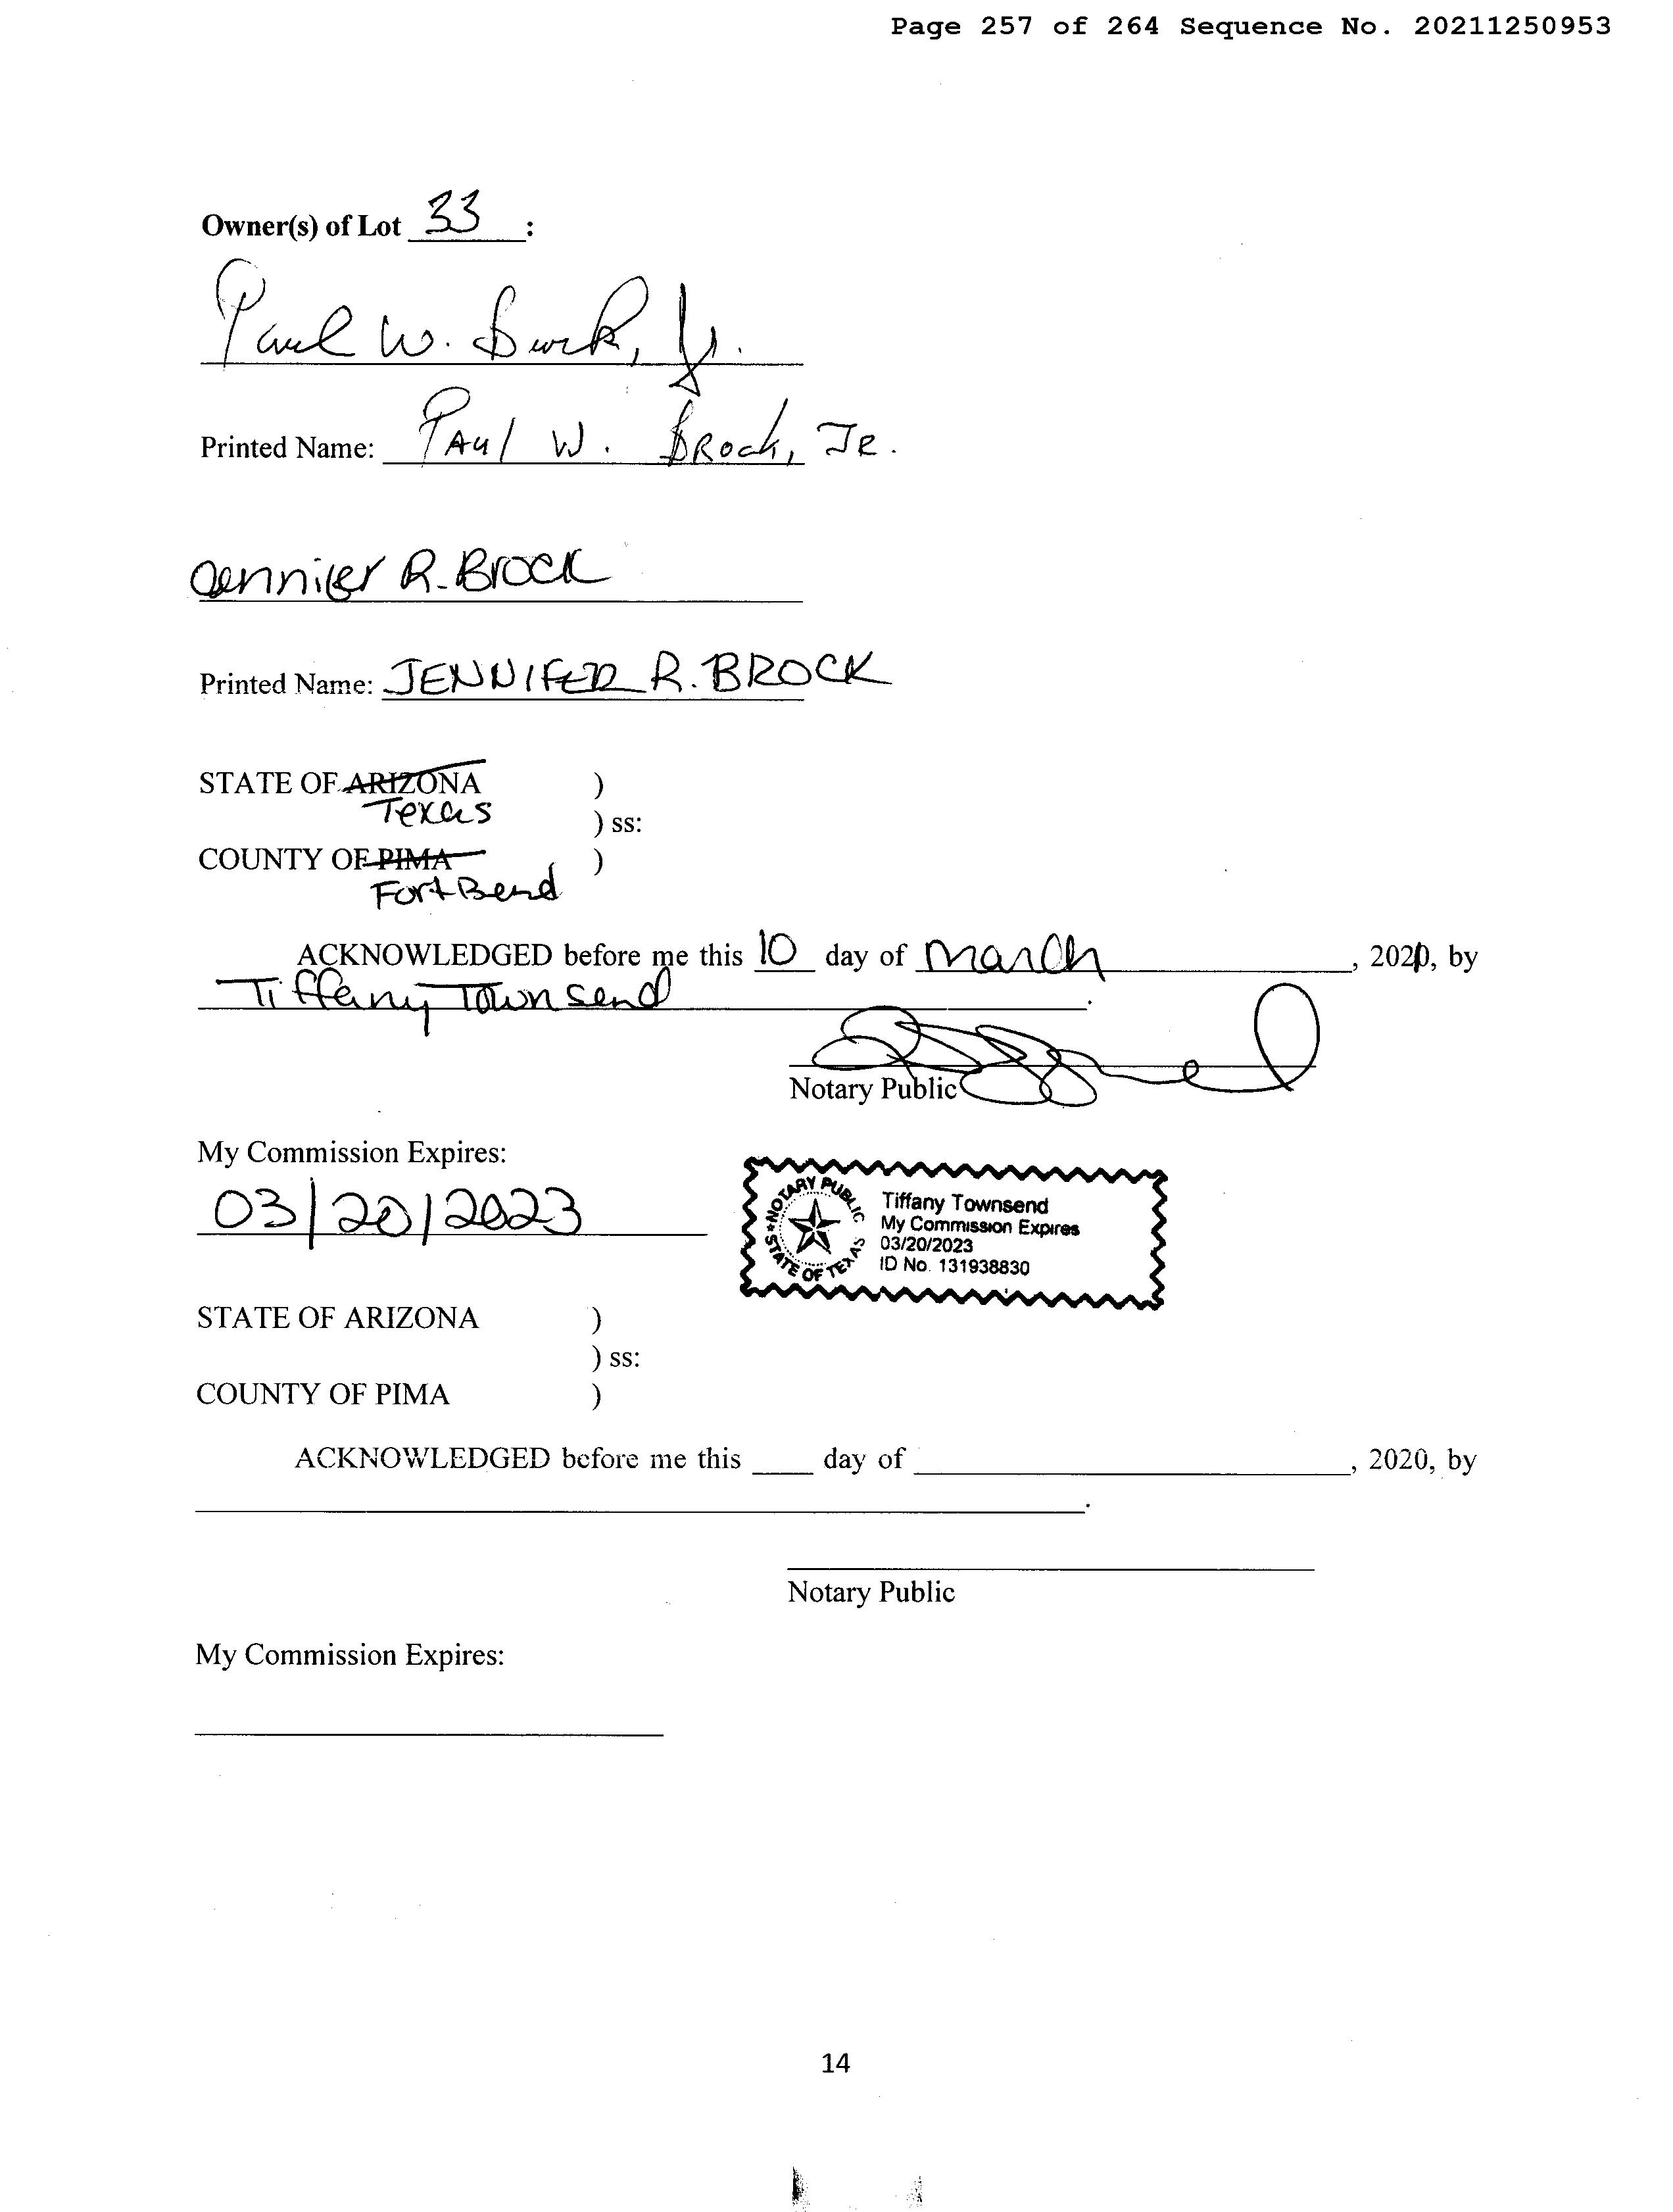 Page 257 of 264 Sequence No. 20211250953
Owner(s) of Lot 33 :
Paul W. Brock, Jr.
Printed Name: PAul W. BRock, JR.
Jennifer R. Brock
Printed Name: JENNIFER R. BROCK
STATE OF ARIZONA )
Texas
) ss:
COUNTY OF PIMA )
Fort Bend
ACKNOWLEDGED before me this 10 day of March, 2021, by
Tiffany Townsend.
Notary Public
My Commission Expires:
03/20/2023
NOTARY PUBLIC
STATE OF TEXAS
Tiffany Townsend
My Commission Expires
03/20/2023
ID No. 131938830
STATE OF ARIZONA )
) ss:
COUNTY OF PIMA )
ACKNOWLEDGED before me this ____ day of ____, 2020, by
.
Notary Public
My Commission Expires:
14